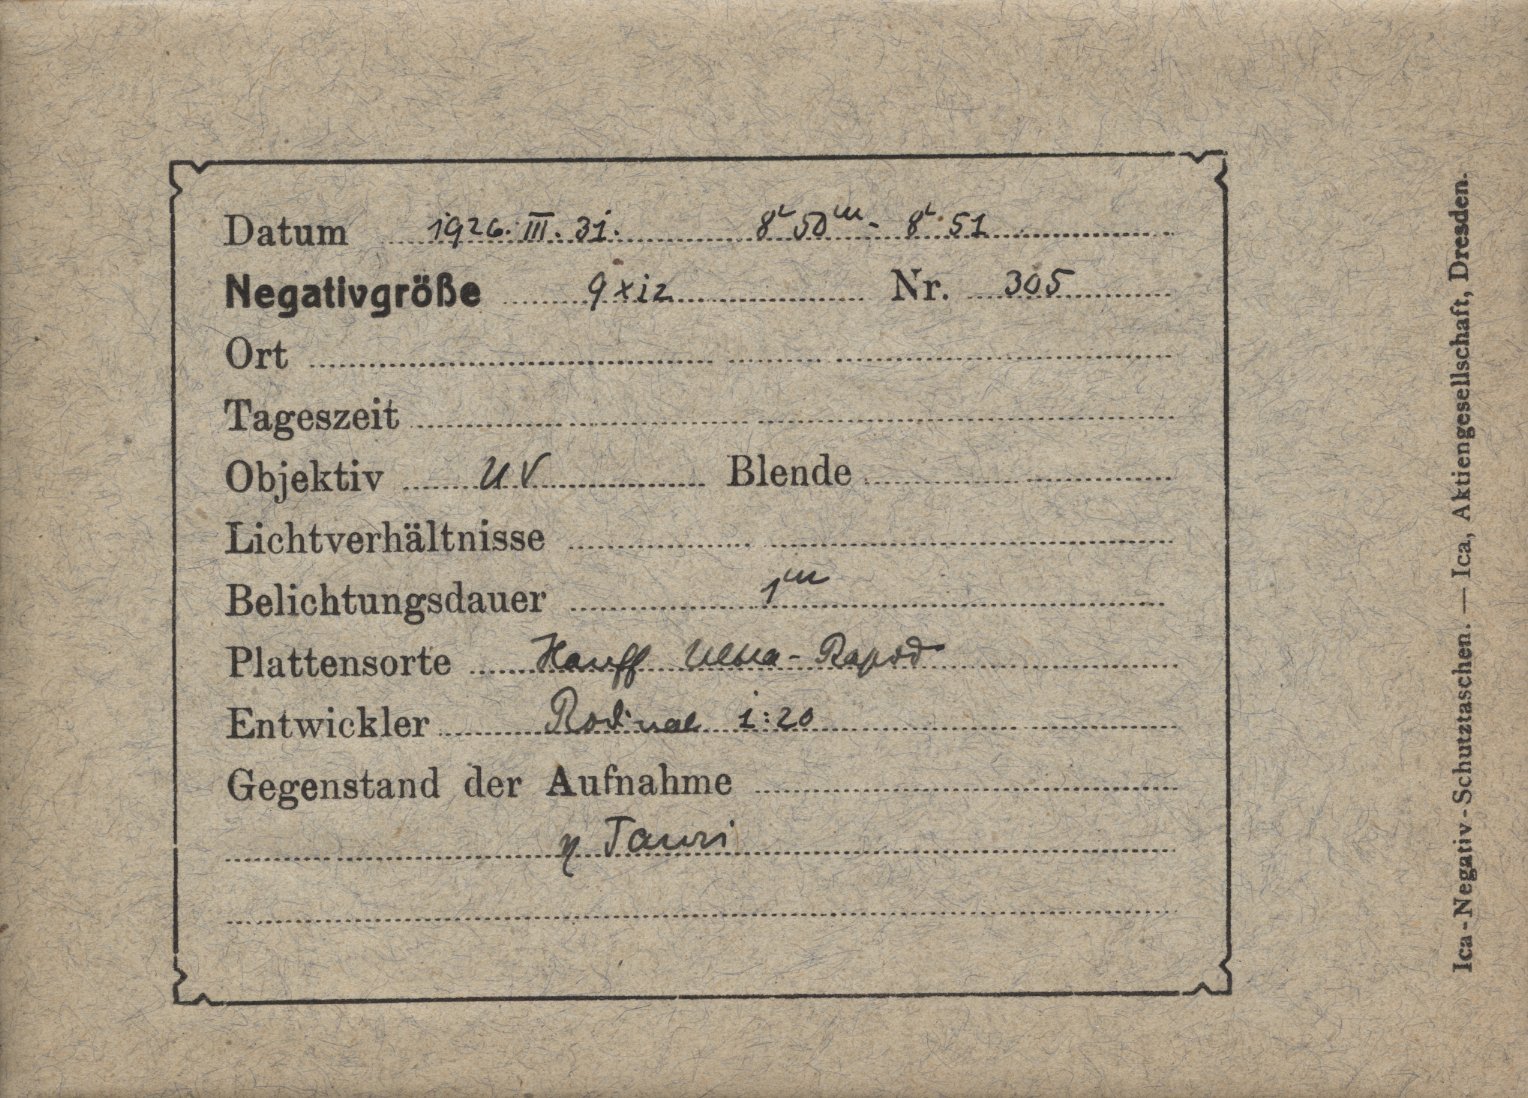 Datum 1926. III. 31. 8h 50m - 8h 51
Negativgröße 9x12 Nr. 305
Ort
Tageszeit
Objektiv UV Blende
Lichtverhältnisse
Belichtungsdauer 1m
Plattensorte Hauff Ultra-Rapid
Entwickler Rodinal 1:20
Gegenstand der Aufnahme
η Tauri
Ica-Negativ-Schutztaschen. — Ica, Aktiengesellschaft, Dresden.